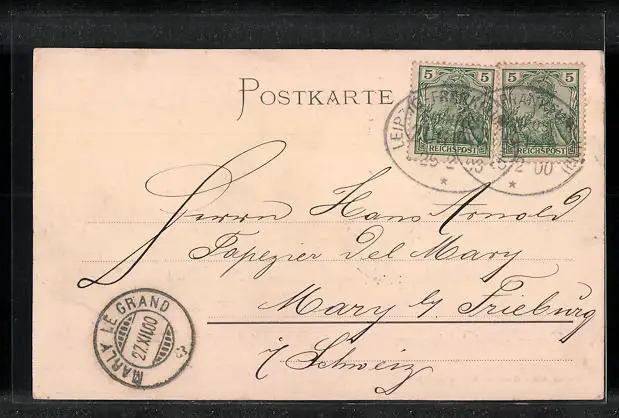 POSTKARTE
5 5
REICHSPOST
5 5
REICHSPOST
LEIPZIG-FRANK
Herrn Hans Arnold
Papezier Del Mary
Mary b/ Frieburg
i/ Schweiz
MARLY LE GRAND
27.XII.00